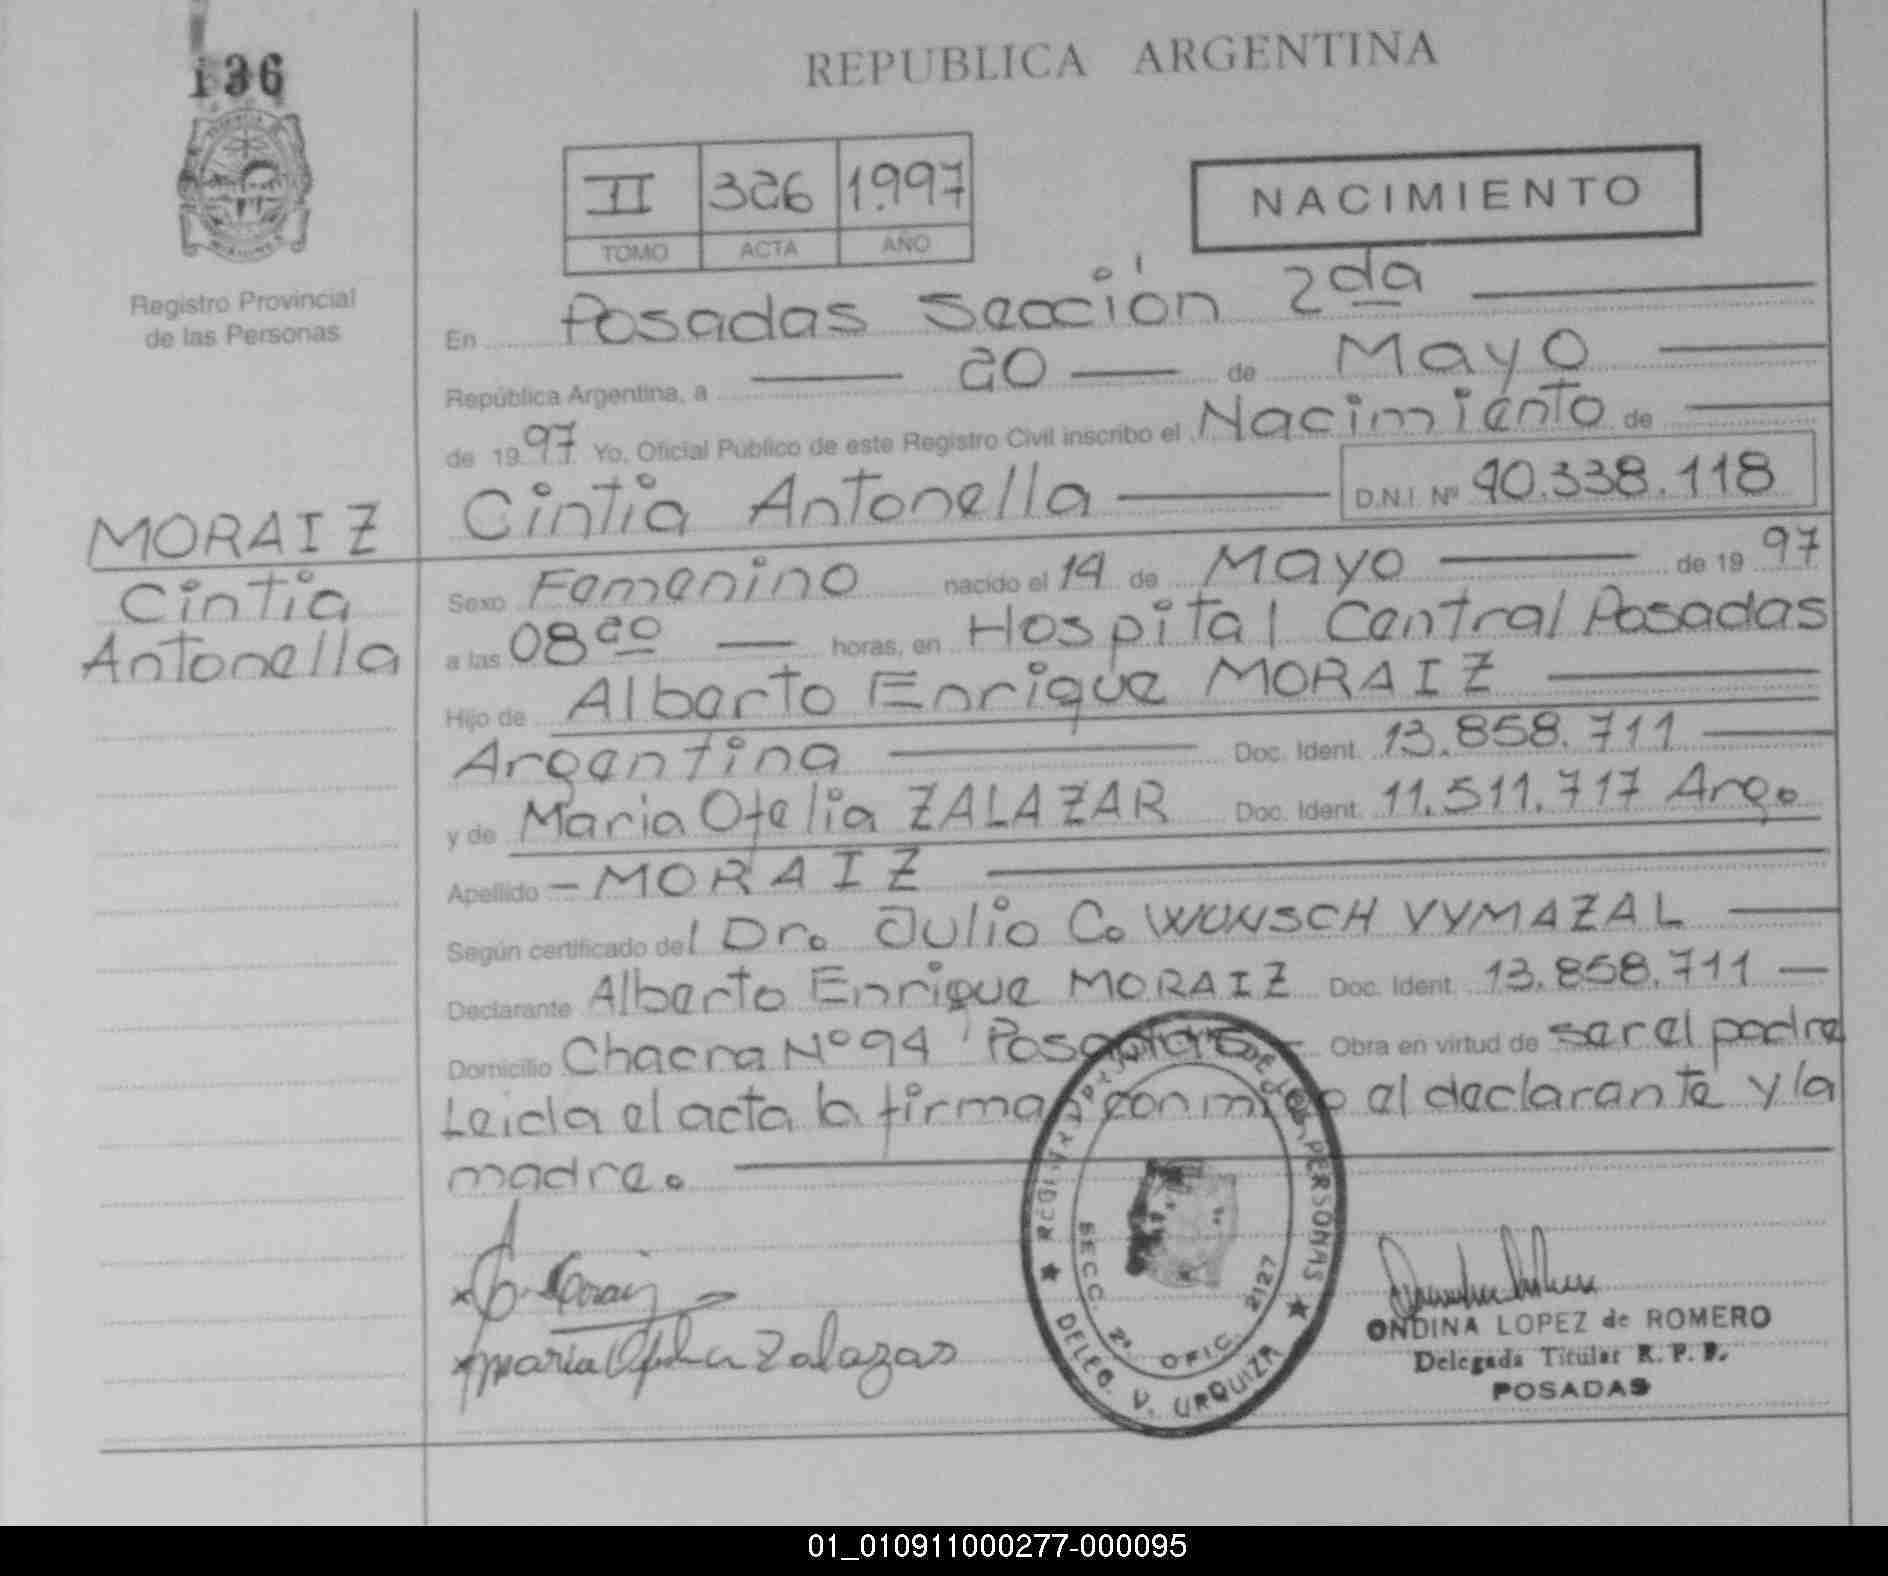 136
REPUBLICA ARGENTINA
II 326 1.997
TOMO ACTA AÑO
NACIMIENTO
Registro Provincial
de las Personas
En Posadas Sección 2da
República Argentina, a 20 de Mayo
de 1997 Yo, Oficial Público de este Registro Civil inscribo el Nacimiento de
Cintia Antonella D.N.I. Nº 40.338.118
MORAIZ
Cintia
Antonella
Sexo Femenino nacido el 14 de Mayo de 19 97
a las 08 20 horas, en Hospital Central Posadas
Hijo de Alberto Enrique MORAIZ
Argentina Doc. Ident. 13.858.711
y de Maria Ofelia ZALAZAR Doc. Ident. 11.511.717 Arg.
Apellido - MORAIZ
Según certificado del Dr. Julio C. WUNSCH VYMAZAL
Declarante Alberto Enrique MORAIZ Doc. Ident. 13.858.711
Domicilio Chacra Nº 94 Posadas Obra en virtud de ser el padre
Leida el acta la firman conmigo el declarante y la
madre.
Maria Ofelia Zalazar
REGISTRO DE LAS PERSONAS
SECC. 2ª OFIC. 2127
DELEG. V. URQUIZA
ONDINA LOPEZ de ROMERO
Delegada Titular R. P. P.
POSADAS
01_010911000277-000095